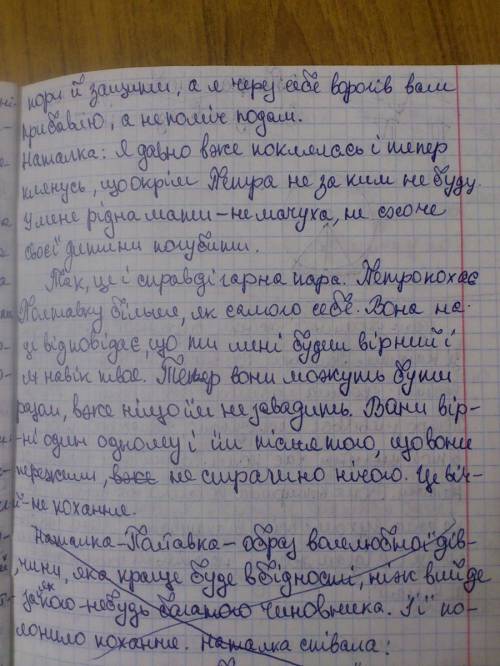 пори й защити, а я через себе ворогів вам
прибавлю, а не поміч подам.
Наталка: Я давно вже поклялась і тепер
клянусь, що окрім Петра не за ким не буду.
У мене рідна мати – не мачуха, не схоче
своєї дитини погубити.
Так, це і справді гарна пара. Петро кохає
Полтавку більше, як самого себе. Вона на
це відповідає, що ти мені будеш вірний і
я навік твоє. Тепер вони можуть бути
разом, вже ніщо їм не завадить. Вони вір-
ні один одному і їм після того, що вони
пережили, вже не страшно нічого. Це віч-
не кохання.
Наталка-Полтавка – образ волелюбної дів-
чини, яка краще буде в бідності, ніж вийде
за якого-небудь багатого чиновника. Її по-
лонило кохання. Наталка співала: